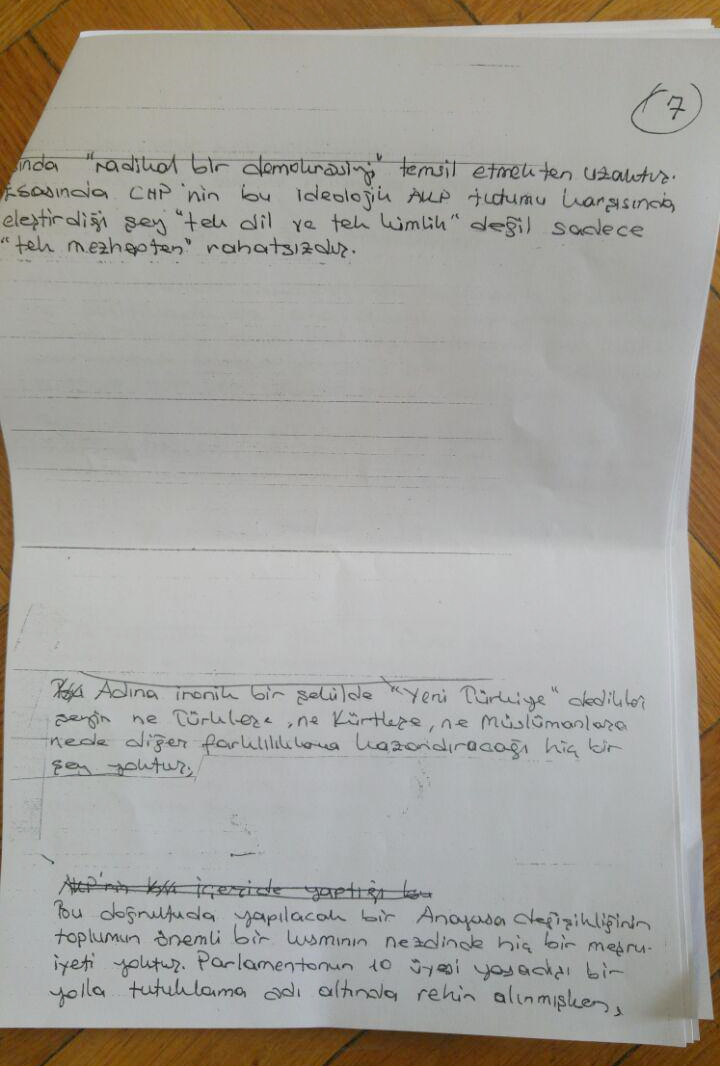 (7)
ında "radikal bir demokrasiyi" temsil etmekten uzaktır.
Esasında CHP'nin bu ideolojik AKP tutumu karşısında
eleştirdiği şey "tek dil ve tek kimlik" değil sadece
"tek mezhepten" rahatsızdır.
Adına ironik bir şekilde "Yeni Türkiye" dedikleri
şeyin ne Türklere, ne Kürtlere, ne Müslümanlara
nede diğer farklılıklara kazandıracağı hiç bir
şey yoktur.
AKP'nin içeride yaptığı bu
Bu doğrultuda yapılacak bir Anayasa değişikliğinin
toplumun önemli bir kısmının nezdinde hiç bir meşru-
iyeti yoktur. Parlamentonun 10 üyesi yasadışı bir
yolla tutuklama adı altında rehin alınmışken,